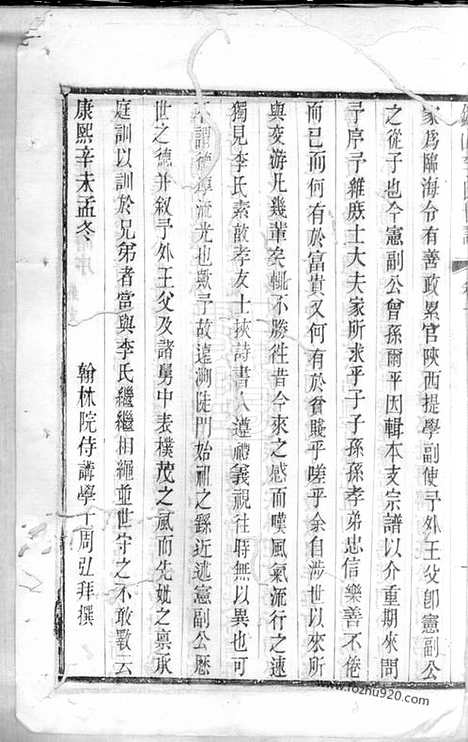 家爲臨海令有善政累官陜西提學副使予外王父卽憲副公
之從子也今憲副公曾孫爾平因輯本支宗譜以介重期來問
予序予雖厥士大夫家所求乎子子孫孫孝弟忠信樂善不倦
而已而何有於富貴又何有於貧賤乎嗟乎余自涉世以來所
與交游凡幾輩矣輒不勝徃昔今來之感而嘆風氣流行之速
獨見李氏素敦孝友士挾詩書人遵禮義視往時無以異
不謂德厚流光也歟予故遠溯陡門始祖之繇近述憲副公歷
世之德幷叙予外王父及諸舅中表樸茂之風而先妣之禀承
庭訓以訓於兄弟者當與李氏繼繼相繩並世守之不敢斁云
康熙辛未孟冬
翰林院侍講學士周弘拜撰
www.fozhu920.com